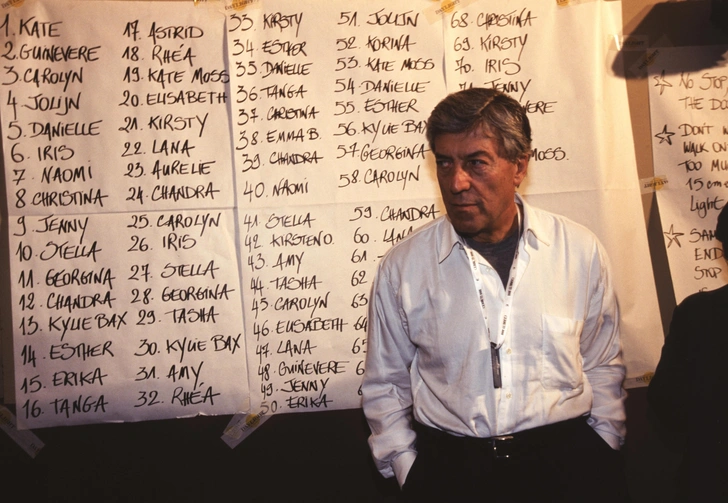 1. KATE
2. GUINEVERE
3. CAROLYN
4. JOLIJN
5. DANIELLE
6. IRIS
7. NAOMI
8. CHRISTINA
9. JENNY
10. STELLA
11. GEORGINA
12. CHANDRA
13. KYLIE BAX
14. ESTHER
15. ERIKA
16. TANGA
17. ASTRID
18. RHÉA
19. KATE MOSS
20. ELISABETH
21. KIRSTY
22. LANA
23. AURELIE
24. CHANDRA
25. CAROLYN
26. IRIS
27. STELLA
28. GEORGINA
29. TASHA
30. KYLIE BAX
31. AMY
32. RHÉA
33. KIRSTY
34. ESTHER
35. DANIELLE
36. TANGA
37. CHRISTINA
38. EMMA B.
39. CHANDRA
40. NAOMI
41. STELLA
42. KIRSTEN O.
43. AMY
44. TASHA
45. CAROLYN
46. ELISABETH
47. LANA
48. GUINEVERE
49. JENNY
50. ERIKA
51. JOLIJN
52. KORINA
53. KATE MOSS
54. DANIELLE
55. ESTHER
56. KYLIE BAX
57. GEORGINA
58. CAROLYN
59. CHANDRA
60. LANA
61
62
63
64
65
68. CHRISTINA
69. KIRSTY
70. IRIS
JENNY
VERE
MOSS.
NO STOP
THE D
DON'T
WALK ON
TOO MU
15 cm
Light
SAM
END
STOP